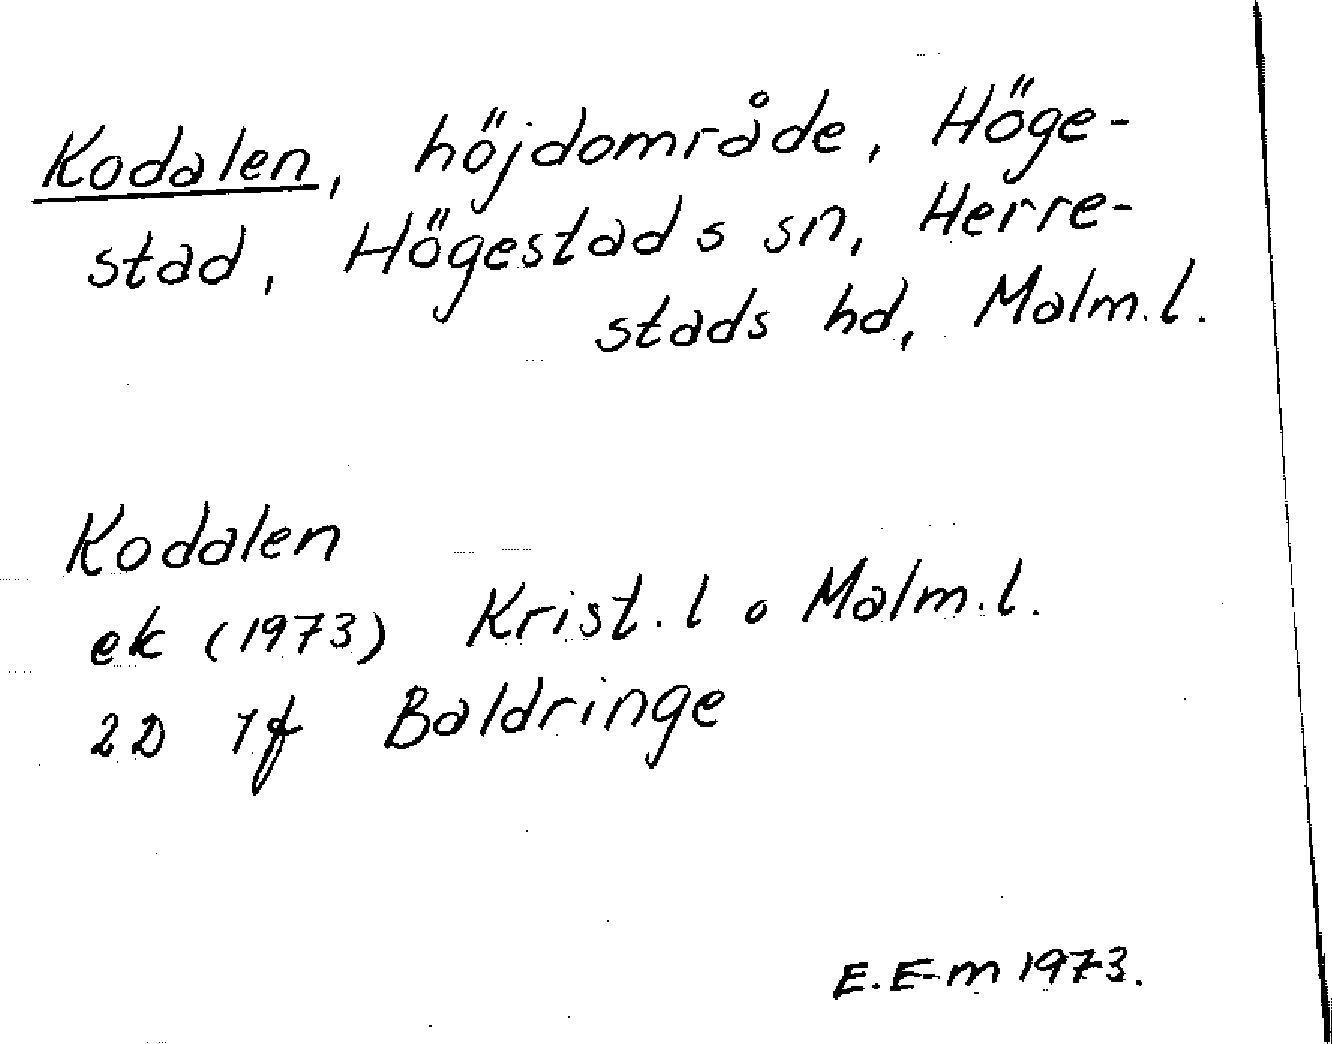 Kodalen, höjdområde, Höge-
stad, Högestads sn, Herre-
stads hd, Malm.l.
Kodalen
ek (1973) Krist.l o Malm.l.
2D 7f Baldringe
E.E-m 1973.